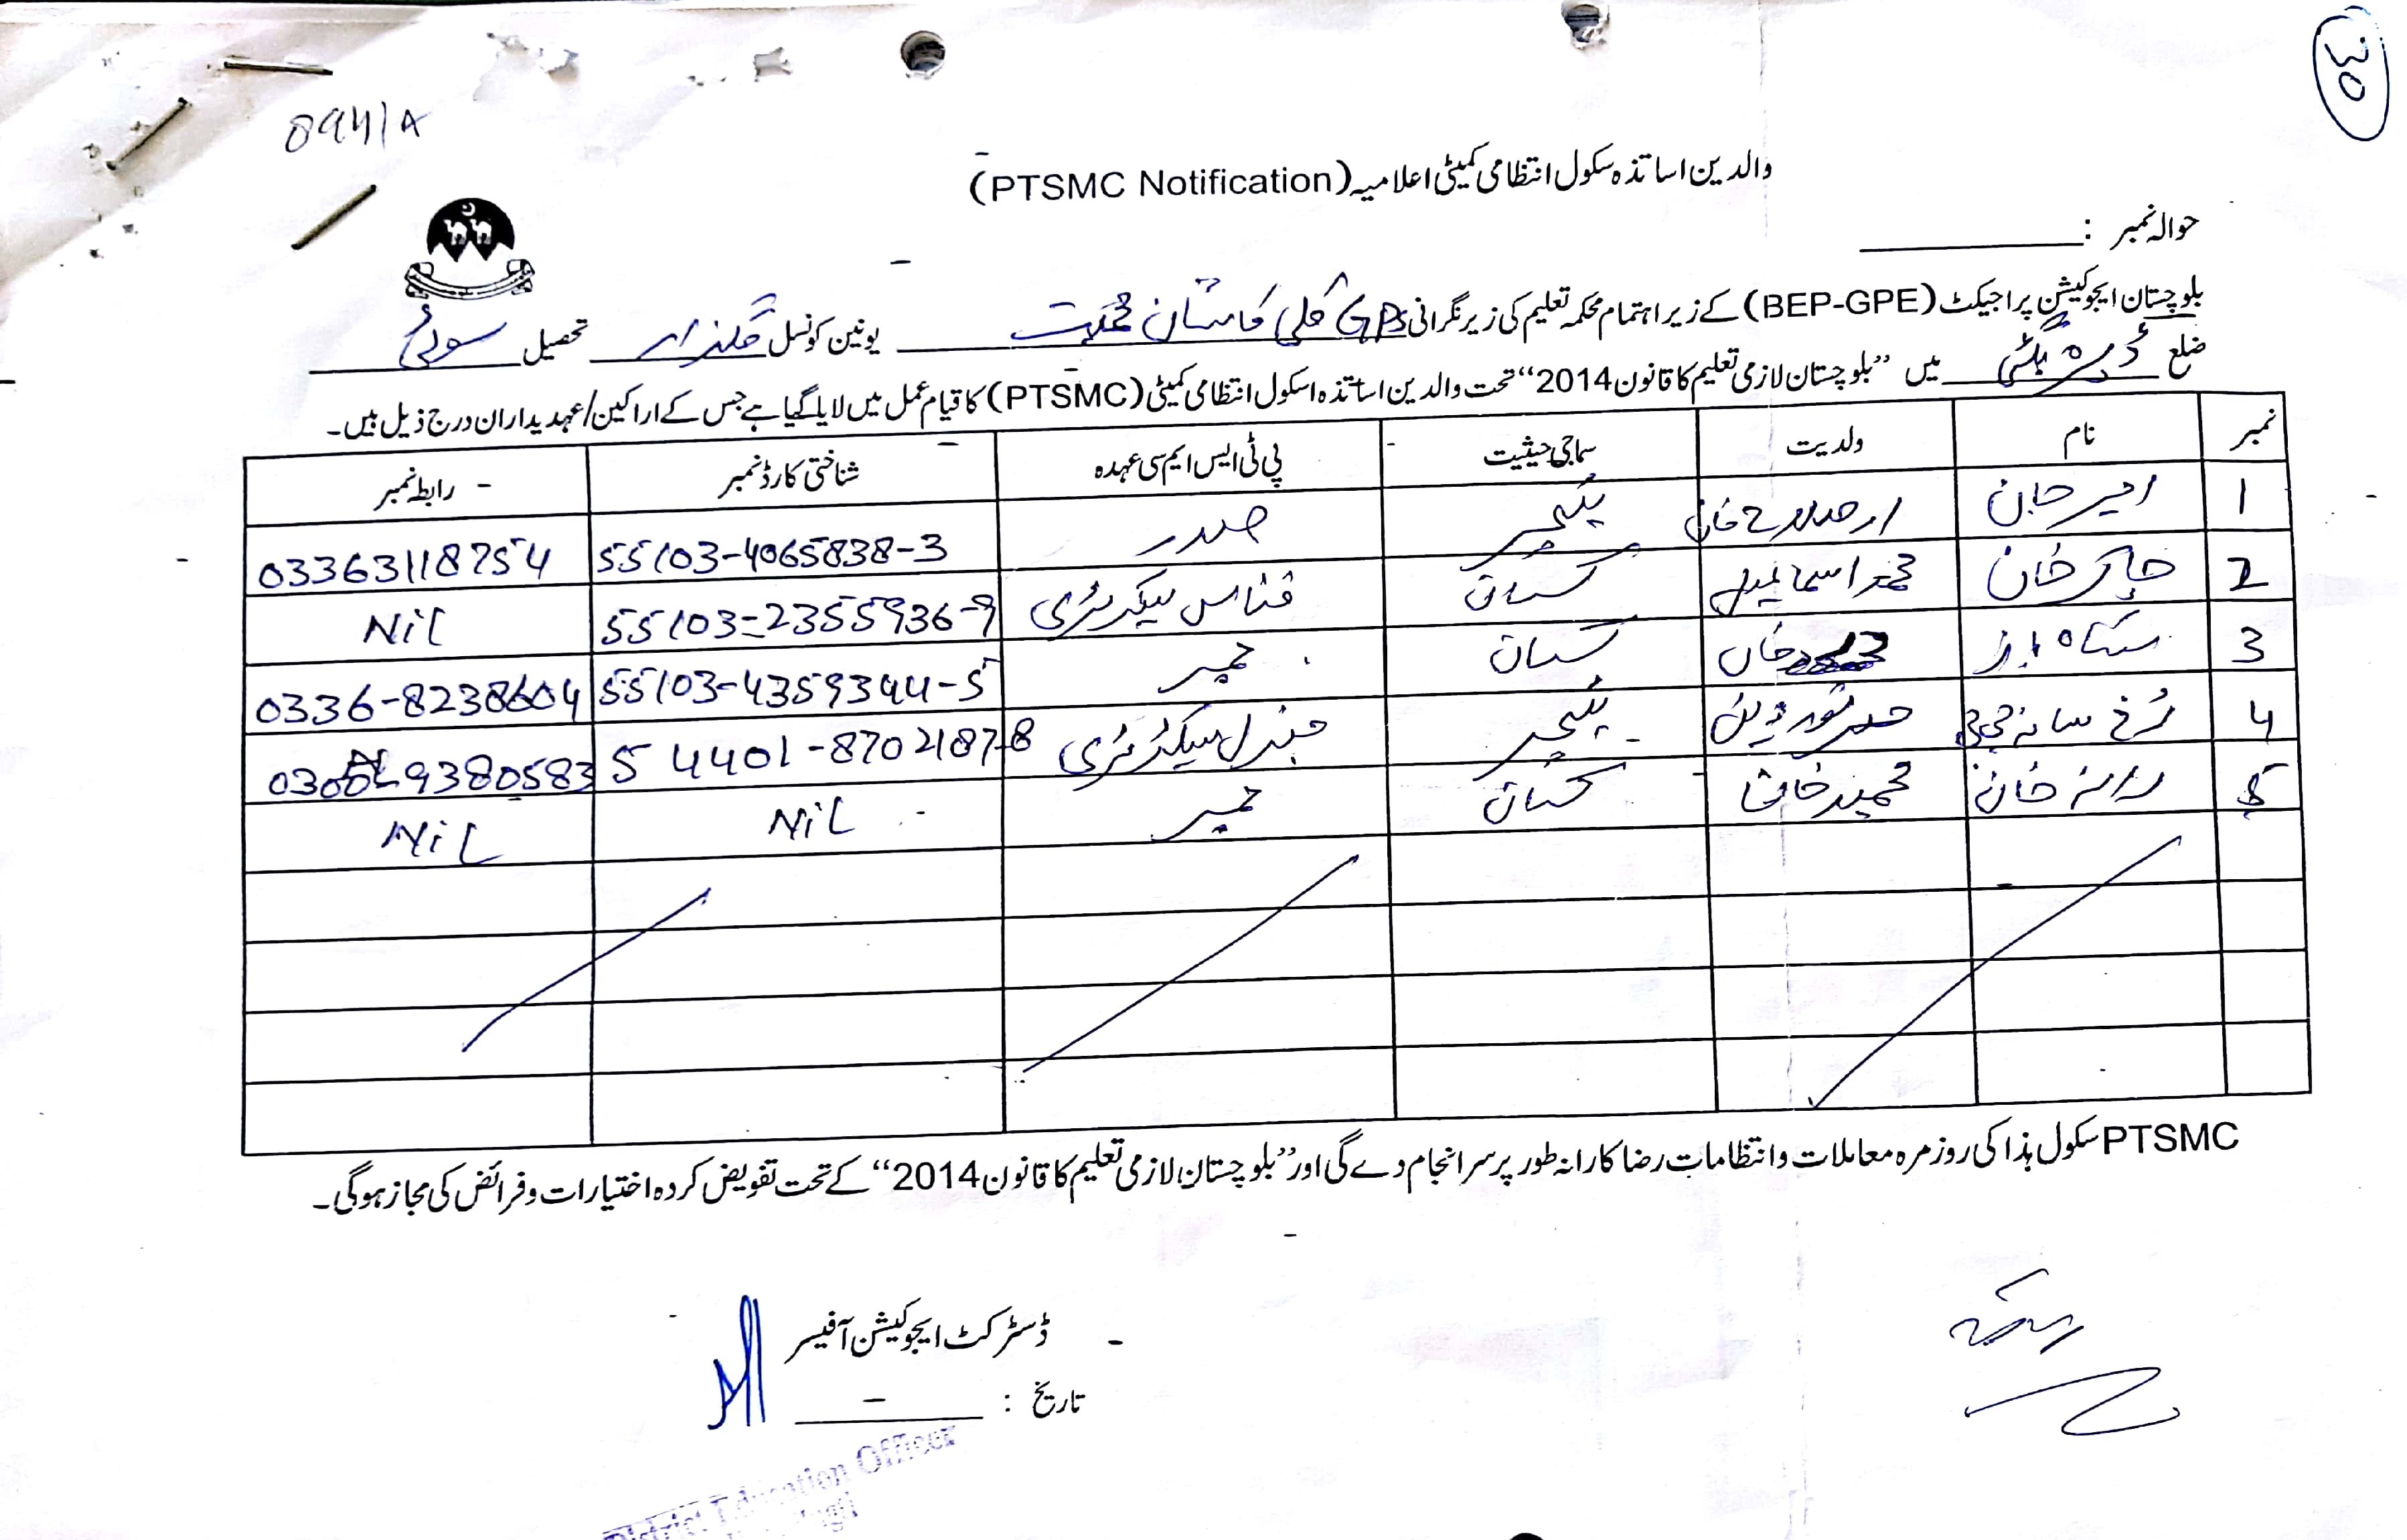 30
0941/A
والدین اساتذہ سکول انتظامی کمیٹی اعلامیہ (PTSMC Notification)
حوالہ نمبر :
بلوچستان ایجوکیشن پراجیکٹ (BEP-GPE) کے زیر اہتمام محکمہ تعلیم کی زیر نگرانی GPS کلی یونین کونسل تحصیل سوئی
ضلع ڈیرہ بگٹی میں ”بلوچستان لازمی تعلیم کا قانون 2014“ تحت والدین اساتذہ اسکول انتظامی کمیٹی (PTSMC) کا قیام عمل میں لایا گیا ہے جس کے اراکین/عہدیداران درج ذیل ہیں۔
نمبر نام ولدیت سماجی حیثیت پی ٹی ایس ایم سی عہدہ شناختی کارڈ نمبر رابطہ نمبر
1 امیر جان خان ٹیچر صدر 55103-4065838-3 03363118754
2 خان محمد اسماعیل کسان فنانس سیکریٹری 55103-2355936-9 Nil
3 خان کسان ممبر 55103-4359344-5 0336-8238604
4 ٹیچر جنرل سیکرٹری 54401-8702187-8
5 خان کسان ممبر Nil Nil
PTSMC سکول ہذا کی روزمرہ معاملات و انتظامات رضا کارانہ طور پر سرانجام دے گی اور ”بلوچستان لازمی تعلیم کا قانون 2014“ کے تحت تفویض کردہ اختیارات و فرائض کی مجاز ہوگی۔
ڈسٹرکٹ ایجوکیشن آفیسر
تاریخ :
District Education Officer